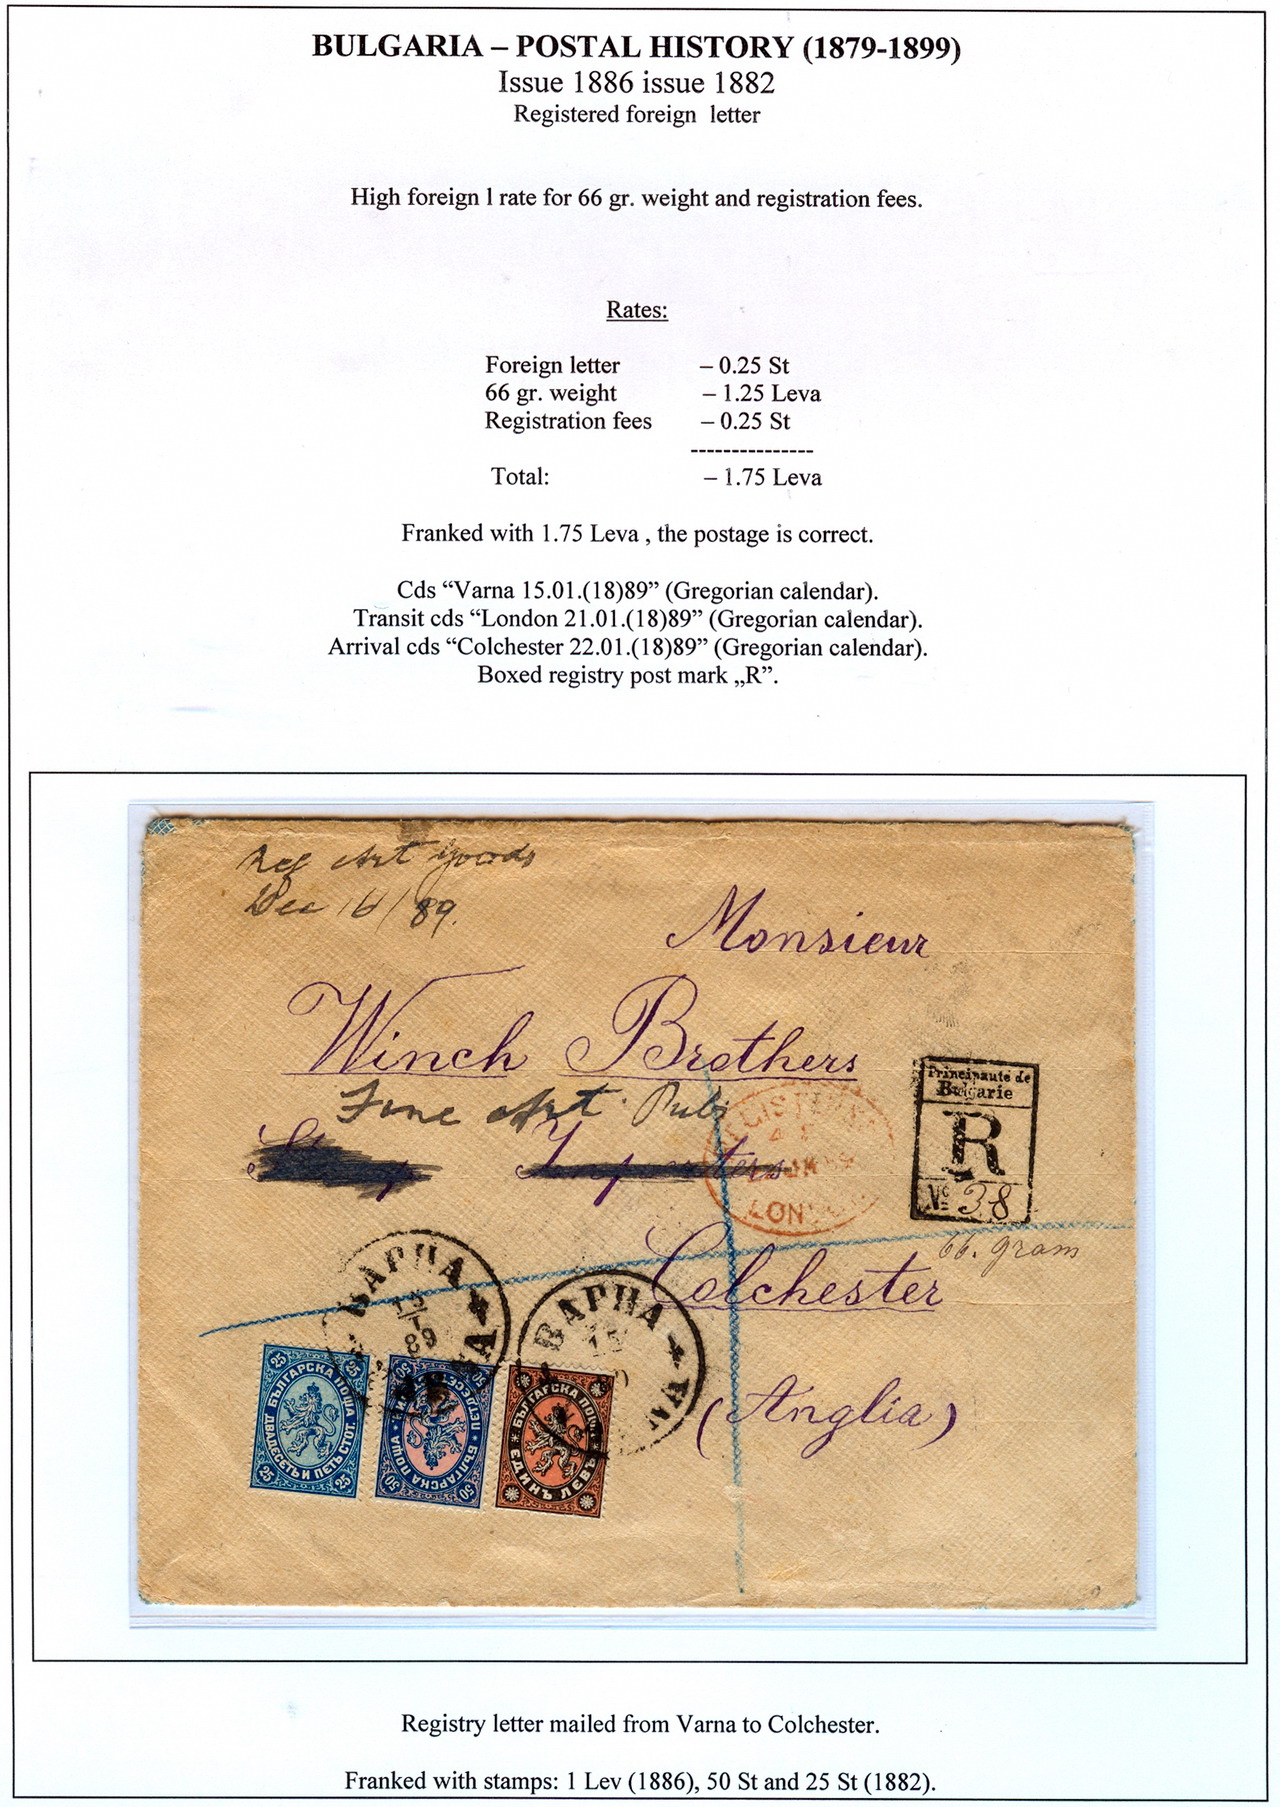 BULGARIA – POSTAL HISTORY (1879-1899)
Issue 1886 issue 1882
Registered foreign letter
High foreign l rate for 66 gr. weight and registration fees.
Rates:
Foreign letter – 0.25 St
66 gr. weight – 1.25 Leva
Registration fees – 0.25 St
---------------
Total: – 1.75 Leva
Franked with 1.75 Leva , the postage is correct.
Cds “Varna 15.01.(18)89” (Gregorian calendar).
Transit cds “London 21.01.(18)89” (Gregorian calendar).
Arrival cds “Colchester 22.01.(18)89” (Gregorian calendar).
Boxed registry post mark „R”.
Art goods
Dec 16/89.
Monsieur
Winch Brothers
Fine Art Pubs
Principauté de
Bulgarie
R
No 38
LON
66. gram
Colchester
(Anglia)
ВАРНА
89
ВАРНА
15
25 25
БЪЛГАРСКА ПОЩА
ДВАДЕСЕТЬ И ПЕТЬ СТОТ.
25 25
50 50
БЪЛГАРСКА ПОЩА
ПЕТДЕСЕ
50 50
БЪЛГАРСКА ПОЩ
ЕДИНЪ ЛЕВЪ
Registry letter mailed from Varna to Colchester.
Franked with stamps: 1 Lev (1886), 50 St and 25 St (1882).